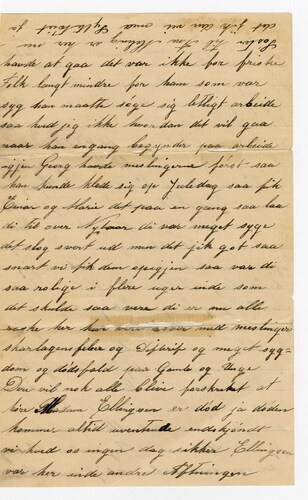 haarde at gaa det var ikke for friske
Folk langt mindre for ham som var
syg han maatte søge sig letligt arbeide
saa hvad jeg ikke hvordan det vil gaa
naar han engang begynder paa arbeide
igjen Georg havde meslingerne först saa
han kunde klæde sig op Juledag saa fik
Einar og Marie det paa en gang saa laa
di til over Nytaar di var meget syge
det slog svert ud men det gik got saa
snart vi fik dem opigjen saa var di
saa rolige i flere uger inde som
det skulde saa være di er nu alle
raske her har meslinger
skarlagensfeber og Diftrit og meget syg-
dom og dödsfald paa Gamle og Unge
Dere vil nok alle blive forskreket at
höre Madam Ellingsen er död ja döden
kommer altid uventende endskjöndt
vi hved os ingen dag sikker Ellingsen
var her inde andre Aftningen